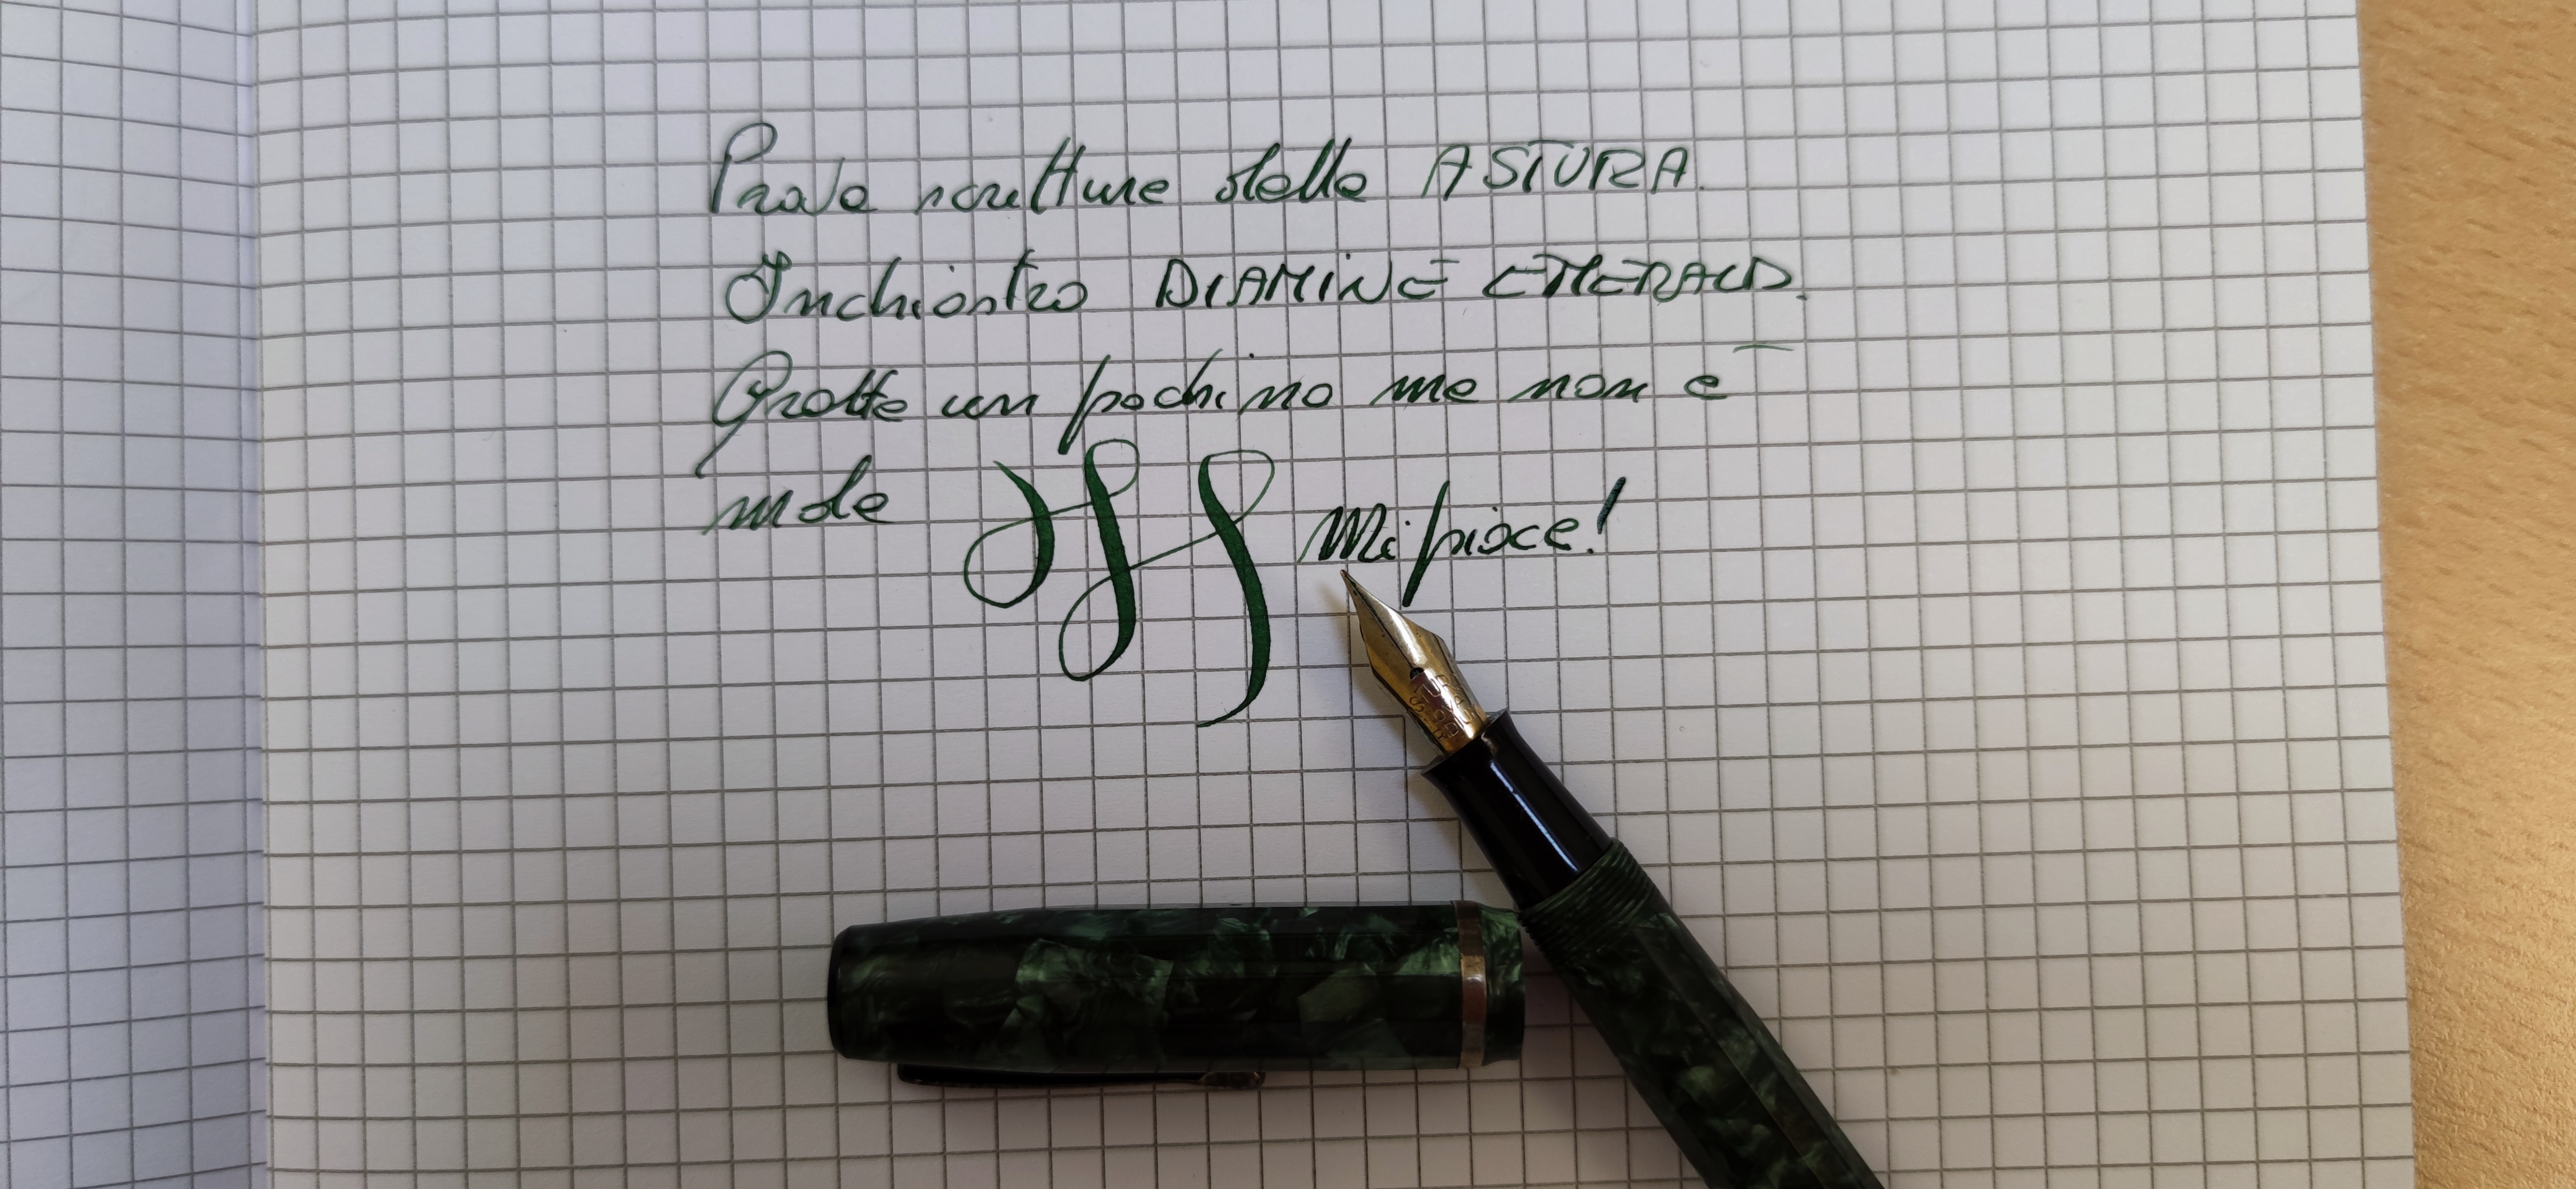 Prova scrittura della ASTURA.
Inchiostro DIAMINE EMERALD.
Gratta un pochino ma non è
male
Mi piace!